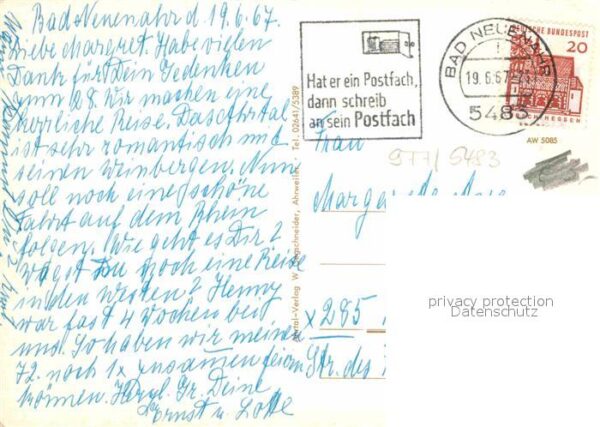 Bad-Neuenahr d. 19.6.67.
Liebe Margret. Habe vielen
Dank für Dein Gedenken
zum 28. Wir machen eine
herrliche Reise. Das Ahrtal
ist sehr romantisch mit
seinen Weinbergen. Nun
soll noch eine schöne
Fahrt auf dem Rhein
folgen. Wie geht es Dir?
wagst Du noch eine Reise
in den Westen? Henny
war fast 4 Wochen bei
uns. So haben wir meinen
72. noch 1x zusammen feiern
können. Herzl. Gr. Deine
Ernst u. Lotte
Hat er ein Postfach,
dann schreib
an sein Postfach
BAD NEUENAHR
19.6.67
5483
DEUTSCHE BUNDESPOST
20
HESSEN
AW 5085
977/5483
Frau
x 285
Str. des
Tel. 02641/5389
Ahrweiler
privacy protection
Datenschutz